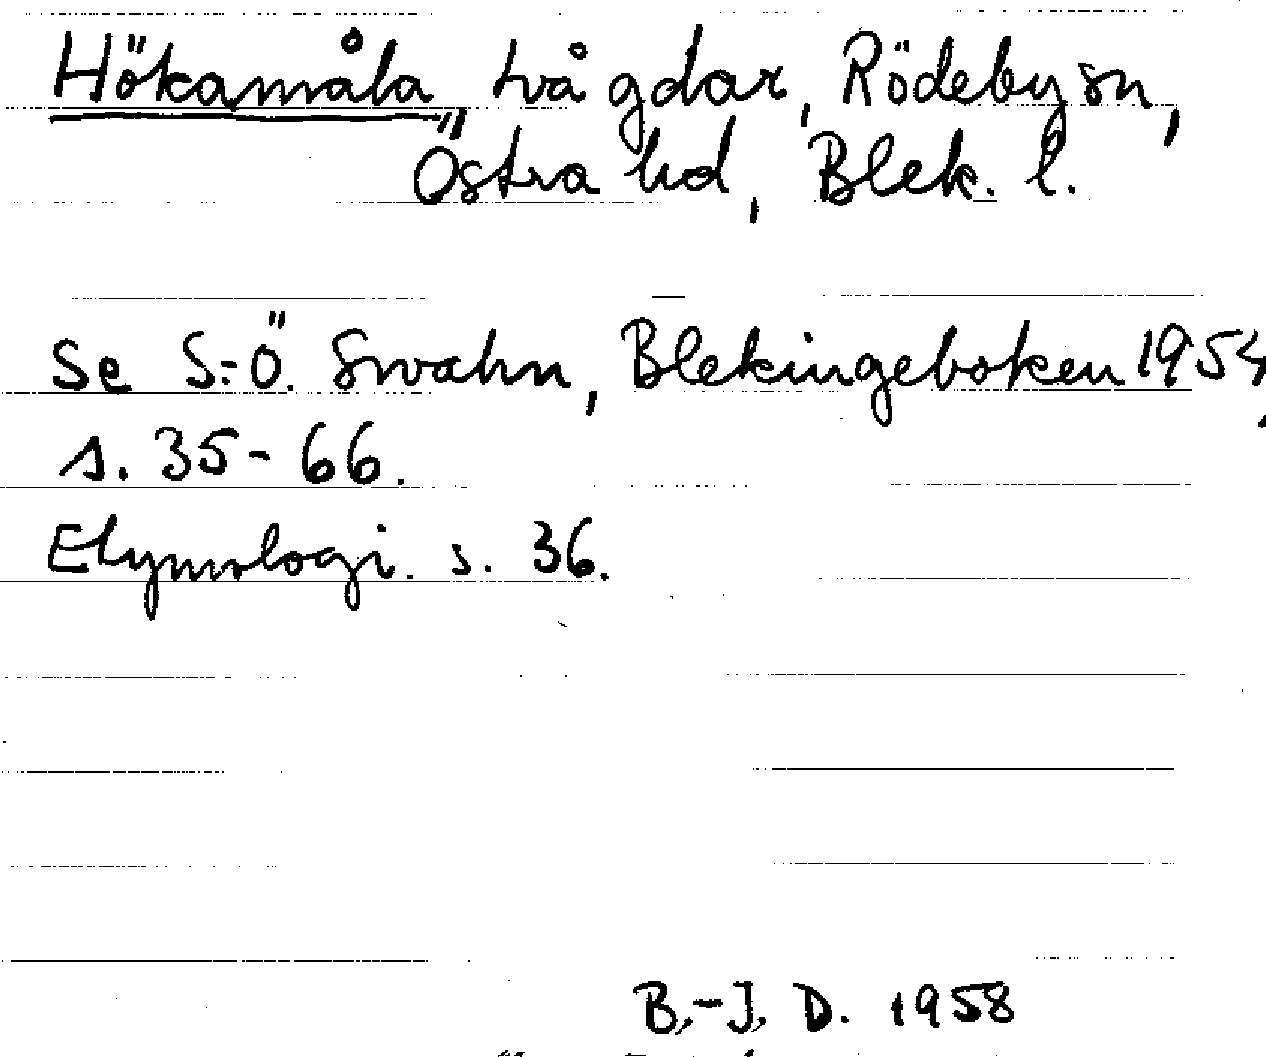 Hökamåla, två gdar, Rödeby sn,
Östra hd, Blek. l.
Se S.-Ö. Swahn, Blekingeboken 1954,
s. 35-66.
Etymologi. s. 36.
B.-J. D. 1958